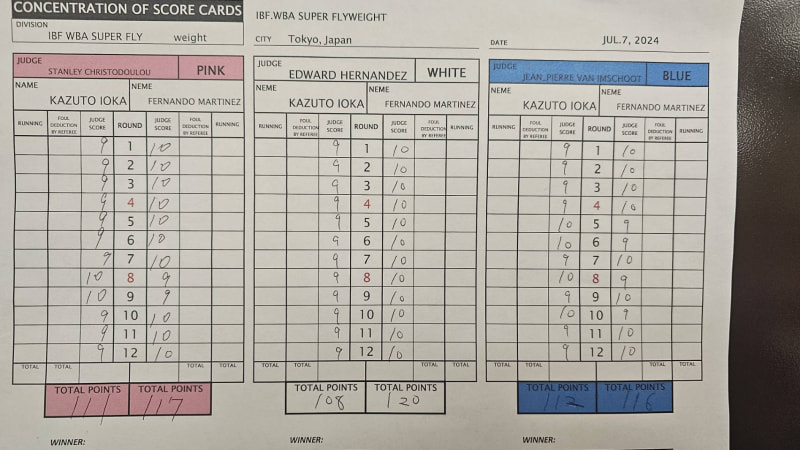 CONCENTRATION OF SCORE CARDS
IBF.WBA SUPER FLYWEIGHT
DIVISION IBF WBA SUPER FLY weight
CITY Tokyo, Japan
DATE JUL.7, 2024
JUDGE STANLEY CHRISTODOULOU PINK
NAME KAZUTO IOKA NEME FERNANDO MARTINEZ
RUNNING FOUL DEDUCTION BY REFEREE JUDGE SCORE ROUND JUDGE SCORE FOUL DEDUCTION BY REFEREE RUNNING
9 1 10
9 2 10
9 3 10
9 4 10
9 5 10
9 6 10
9 7 10
10 8 9
10 9 9
9 10 10
9 11 10
9 12 10
TOTAL TOTAL TOTAL TOTAL
TOTAL POINTS TOTAL POINTS
111 117
WINNER:
JUDGE EDWARD HERNANDEZ WHITE
NEME KAZUTO IOKA NEME FERNANDO MARTINEZ
RUNNING FOUL DEDUCTION BY REFEREE JUDGE SCORE ROUND JUDGE SCORE FOUL DEDUCTION BY REFEREE RUNNING
9 1 10
9 2 10
9 3 10
9 4 10
9 5 10
9 6 10
9 7 10
9 8 10
9 9 10
9 10 10
9 11 10
9 12 10
TOTAL TOTAL TOTAL TOTAL
TOTAL POINTS TOTAL POINTS
108 120
WINNER:
JUDGE JEAN_PIERRE VAN IMSCHOOT BLUE
NEME KAZUTO IOKA NEME FERNANDO MARTINEZ
RUNNING FOUL DEDUCTION BY REFEREE JUDGE SCORE ROUND JUDGE SCORE FOUL DEDUCTION BY REFEREE RUNNING
9 1 10
9 2 10
9 3 10
9 4 10
10 5 9
10 6 9
9 7 10
10 8 9
9 9 10
10 10 9
9 11 10
9 12 10
TOTAL TOTAL TOTAL TOTAL
TOTAL POINTS TOTAL POINTS
112 116
WINNER: